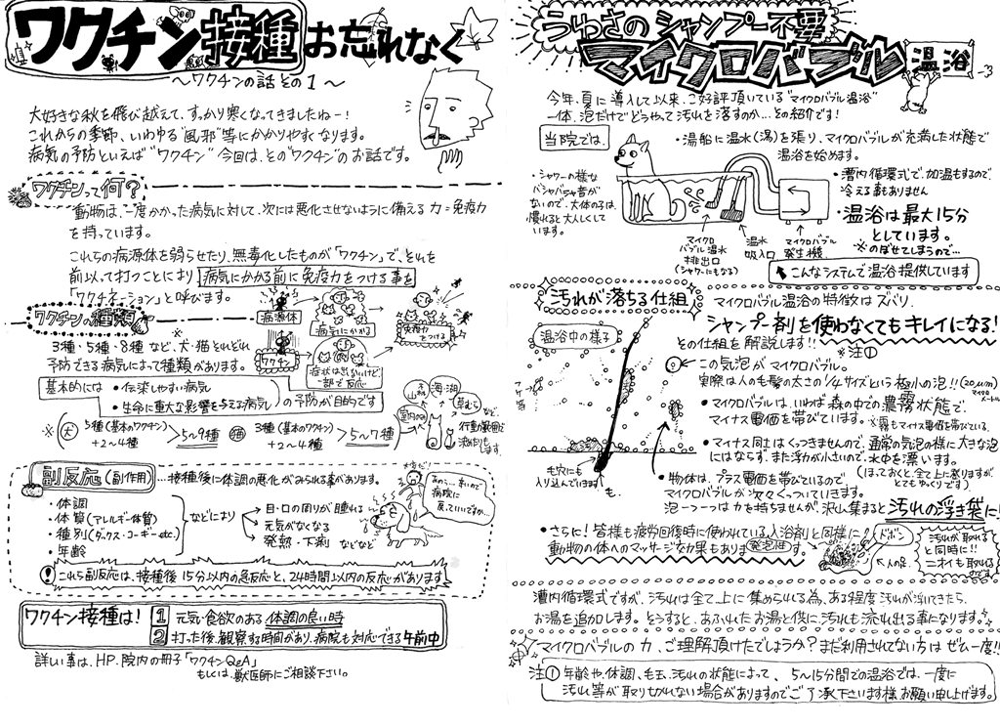 ワクチン接種お忘れなく
～ワクチンの話その1～
大好きな秋を飛び越えて、すっかり寒くなってきましたねー!
これからの季節、いわゆる"風邪"等にかかりやすくなります。
病気の予防といえば"ワクチン"今回は、その"ワクチン"のお話です。
ワクチンって何?
動物は、一度かかった病気に対して、次には悪化させないように備える力=免疫力
を持っています。
これらの病源体を弱らせたり、無毒化したものが「ワクチン」で、それを
前以って打つことにより病気にかかる前に免疫力をつける事を
「ワクチネーション」と呼びます。
病源体
病気にかかる
免疫力をつける
ワクチン
症状は出ないけど一部で反応
ワクチンの種類
※
3種・5種・8種など、犬・猫それぞれ
予防できる病気によって種類があります。
基本的には
・伝染しやすい病気
・生命に重大な影響を与える病気
の予防が目的です
※
犬
5種(基本のワクチン)
+2～4種
5～9種
猫
3種(基本のワクチン)
+2～4種
5～7種
室内のみ
山林
海・湖
草むら
など、
行動範囲で
決めます
副反応(副作用)
…接種後に体調の悪化がみられる事があります。
・体調
・体質(アレルギー体質)
・種別(ダックス・コーギーetc.)
・年齢
などにより
・目・口の周りが腫れる
元気がなくなる
発熱・下痢 などなど
!これら副反応は、接種後15分以内の急反応と、24時間以内の反応があります
ワクチン接種は!
1 元気・食欲のある体調の良い時
2 打った後、観察する時間があり、病院も対応できる午前中
詳しい事は、HP、院内の冊子「ワクチンQ&A」
もしくは、獣医師にご相談下さい。
うわさのシャンプー不要
マイクロバブル温浴
今年、夏に導入して以来、ご好評頂いている"マイクロバブル温浴"
一体、泡だけでどうやって汚れを落すのか…その紹介です!
当院では、
・湯船に温水(湯)を張り、マイクロバブルが充満した状態で
温浴を始めます。
・シャワーの様な
バシャバシャ音が
ないので、大体のコは、
慣れると大人しくして
います。
・漕内循環式で、加温もするので、
冷える事もありません
・温浴は最大15分
としています。
※のぼせてしまうので…
マイクロ
バブル温水
排出口
(シャワーにもなる)
温水
吸入口
マイクロバブル
発生機
こんなシステムで温浴提供しています
汚れが落ちる仕組
マイクロバブル温浴の特徴はズバリ、
シャンプー剤を使わなくてもキレイになる!
その仕組を解説します!!
※注①
温浴中の様子
毛穴にも
入り込んでいます
毛
○この気泡がマイクロバブル。
実際は人の毛髪の太さの1/4サイズという極小の泡!!(20μm)
マイクロメートル
・マイクロバブルは、いわば森の中での濃霧状態で、
マイナス電価を帯びています。
※霧もマイナス電価を帯びている。
・マイナス同士はくっつきませんので、通常の気泡の様に大きな泡
にはならず、また浮力が小さいので、水中を漂います。
(ほっておくと、全て上に登りますが、
とてもゆっくりです)
・物体は、プラス電価を帯びているので
マイクロバブルが次々くっついていきます。
泡一つ一つは力を持ちませんが、沢山集まると汚れの浮き袋に!
・さらに!皆様も疲労回復時に使われている入浴剤と同様に
動物の体へのマッサージ効果もあります
発泡性
ドボン
人の足
汚れが取れる
と同時に!!
ニオイも取れる
漕内循環式ですが、汚れは全て上に集められる為、ある程度汚れが浮いてきたら、
お湯を追加します。そうすると、あふれたお湯と供に、汚れも流れ出る事になります。
マイクロバブルの力、ご理解頂けたでしょうか?まだ利用されてない方はぜひ一度!!
注①年齢や体調、毛玉、汚れの状態によって、5～15分間での温浴では、一度に
汚れ等が取りきれない場合がありますのでご了承下さいます様お願い申し上げます。